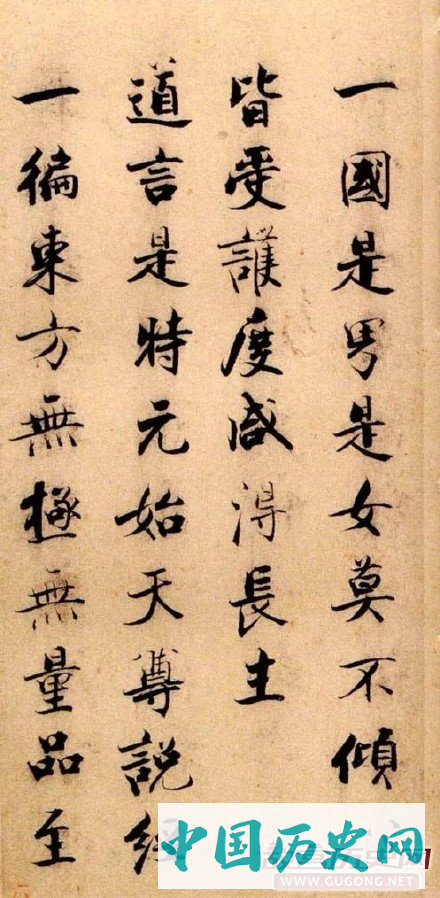 一國是男是女莫不傾
皆受護度咸得長生
道言是時元始天尊說
一徧東方無極無量品至
中国历史网
WWW.GUGONG.NET